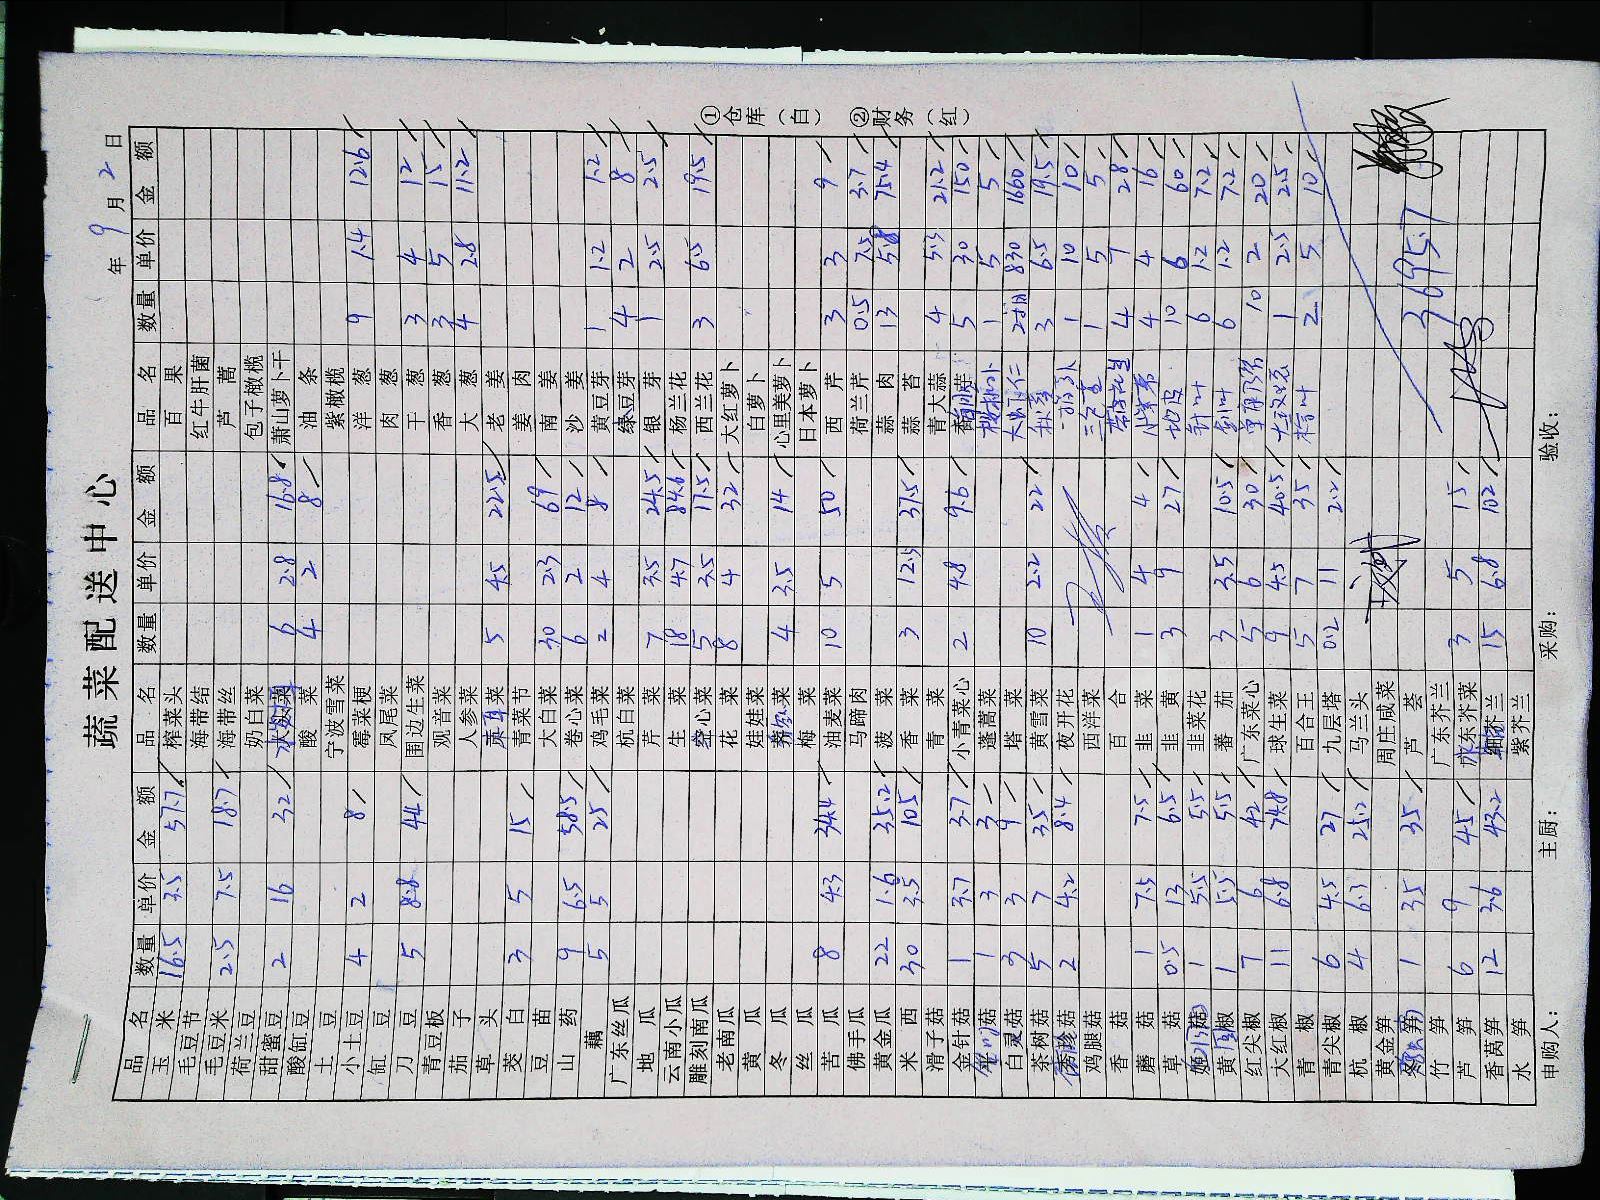 蔬菜配送中心
年 9 月 2 日
品名 数量 单价 金额 品名 数量 单价 金额 品名 数量 单价 金额
玉米 16.5 3.5 57.7 榨菜头 百果
毛豆节 海带结 红牛肝菌
毛豆米 2.5 7.5 18.7 海带丝 芦蒿
荷兰豆 奶白菜 包子橄榄
甜蜜豆 2 16 32 菜 6 2.8 16.8 萧山萝卜干
酸缸豆 酸菜 4 2 8 油条
土豆 宁波雪菜 紫橄榄
小土豆 4 2 8 霉菜梗 洋葱 9 1.4 12.6
缸豆 凤尾菜 肉葱
刀豆 5 8.8 44 围边生菜 干葱 3 4 12
青豆板 观音菜 香葱 3 5 15
茄子 人参菜 大葱 4 2.8 11.2
草头 菜 5 4.5 22.5 老姜
茭白 3 5 15 青菜节 姜肉
豆苗 大白菜 30 2.3 69 南姜
山药 9 6.5 58.5 卷心菜 6 2 12 沙姜
藕 5 5 25 鸡毛菜 2 4 8 黄豆芽 1 1.2 1.2
广东丝瓜 杭白菜 绿豆芽 4 2 8
地瓜 芹菜 7 3.5 24.5 银芽 1 2.5 2.5
云南小瓜 生菜 18 4.7 84.6 杨兰花
雕刻南瓜 空心菜 5 3.5 17.5 西兰花 3 6.5 19.5
老南瓜 花菜 8 4 32 大红萝卜
黄瓜 娃娃菜 白萝卜
冬瓜 菜 4 3.5 14 心里美萝卜
丝瓜 梅菜 日本萝卜
苦瓜 8 4.3 34.4 油麦菜 10 5 50 西芹 3 3 9
佛手瓜 马蹄肉 荷兰芹 0.5 7.5 3.7
黄金瓜 22 1.6 35.2 菠菜 蒜肉 13 5.8 75.4
米西 30 3.5 105 香菜 3 12.5 37.5 蒜苔
滑子菇 青菜 青大蒜 4 5.3 21.2
金针菇 1 3.7 3.7 小青菜心 2 4.8 9.6 5 30 150
菇 1 3 3 蓬蒿菜 1 5 5
白灵菇 3 3 9 塔菜 大虾仁 2箱 830 1660
茶树菇 5 7 35 黄雪菜 10 2.2 22 秋葵 3 6.5 19.5
秀珍菇 2 4.2 8.4 夜开花 1 10 10
鸡腿菇 西洋菜 1 5 5
香菇 百合 4 7 28
蘑菇 1 7.5 7.5 韭菜 1 4 4 4 4 16
草菇 0.5 13 6.5 韭黄 3 9 27 地皮 10 6 60
菇 1 5.5 5.5 韭菜花 针叶 6 1.2 7.2
黄椒 1 5.5 5.5 蕃茄 3 3.5 10.5 剑叶 6 1.2 7.2
红尖椒 7 6 42 广东菜心 5 6 30 10 2 20
大红椒 11 6.8 74.8 球生菜 9 4.5 40.5 1 2.5 2.5
青椒 百合王 5 7 35 粽叶 2 5 10
青尖椒 6 4.5 27 九层塔 0.2 11 2.2
杭椒 4 6.3 25.2 马兰头
黄金笋 周庄咸菜
笋 1 35 35 芦荟 3695.7
竹笋 广东芥兰
芦笋 6 9 45 广东芥菜 3 5 15
香莴笋 12 3.6 43.2 细芥兰 15 6.8 102
水笋 紫芥兰
申购人： 主厨： 采购： 验收：
①仓库（白） ②财务（红）